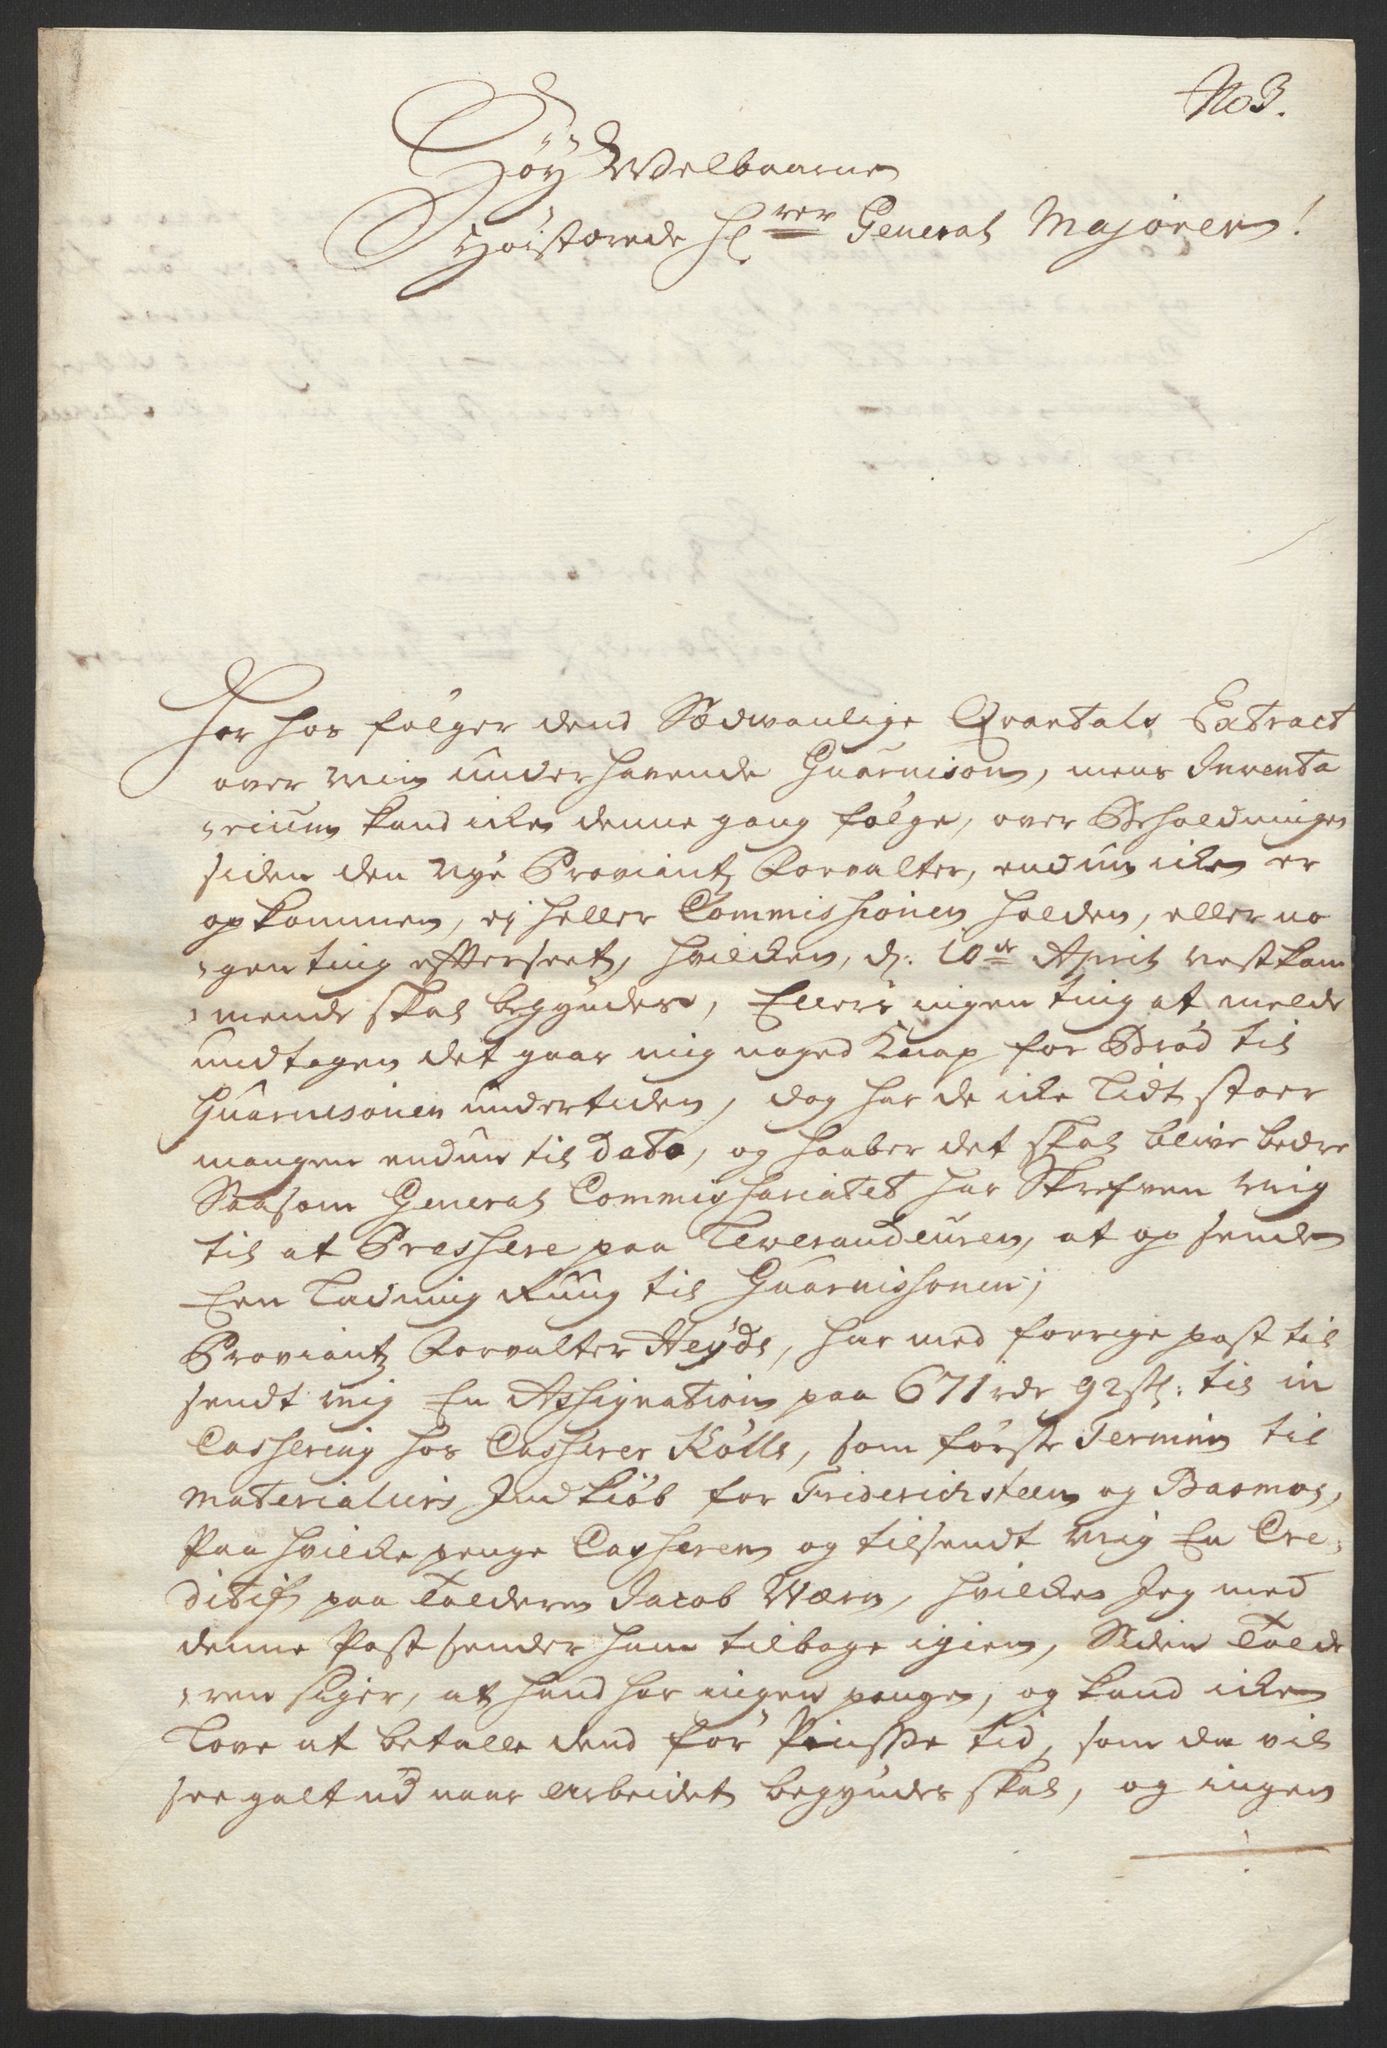 No 3.
Høy Welbaarne
Høistærede H:rer General Majoren!
Her hos følger dend Sædwanlige Qvartals Extract
over min underhavende Guarnison, mens Inventa
-rium kand icke denne gang følge, over Beholdningen
siden den nye Proviantz Forvalter, endnu icke er
opkommen, ej heller Commissionen holden, eller no
-gen ting efterseet, hvilken, d: 10de April nestkom
-mende skal begyndes, Ellers ingen ting at melde
undtagen det gaar mig noged Knap for Brød til
Guarnisonen undertiden, dog har de icke Lidt stoer
mangen endnu til Dato, og haaber det skal blive bedre
Saasom General Commissariatet har Skrefven mig
til at Pressere paa Leverandeuren, at op sende
Een Ladning Rug til Guarnissonen;
Proviantz Forvalter Heyde, har med forrige post til
sendt mig En Assignation paa 671 rdr 92 sk: til in
Cassering hos Casserer Kølle, som første Termin til
Materialiers Indkiøb for Friderichsteen og Basmoe,
Paa hvilke penge Casseren og tilsendt mig En Cre-
ditif paa Tolderen Jacob Wærn, hvilken Jeg med
denne Post sender ham tilbage igien, Siden Tolde
-ren siger, at hand har ingen penge, og kand icke
Love at betalle dend før Pindse tid, som da vil
see galt ud naar Arbeidet begyndes skal, og ingen